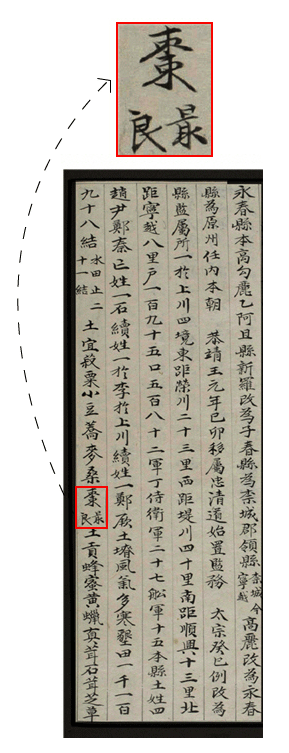 棗
最良
永春縣本高勾麗乙阿旦縣新羅改為子春縣為柰城郡領縣柰城寧越今高麗改為永春
縣為原州任內本朝 恭靖王元年己卯移屬忠清道始置監務 太宗癸巳例改為
縣監屬所一於上川四境東距榮川二十三里西距堤川四十里南距順興十三里北
距寧越八里戶一百九十五口五百八十二軍丁侍衛軍二十七舩軍十五本縣土姓四
趙尹鄭秦亡姓一石續姓一於李於上川續姓一鄭厥土塉風氣多寒墾田一千一百
九十八結水田止二十一結土宜菽粟小豆蕎麥桑棗最良土貢蜂蜜黃蠟真茸石茸芝草